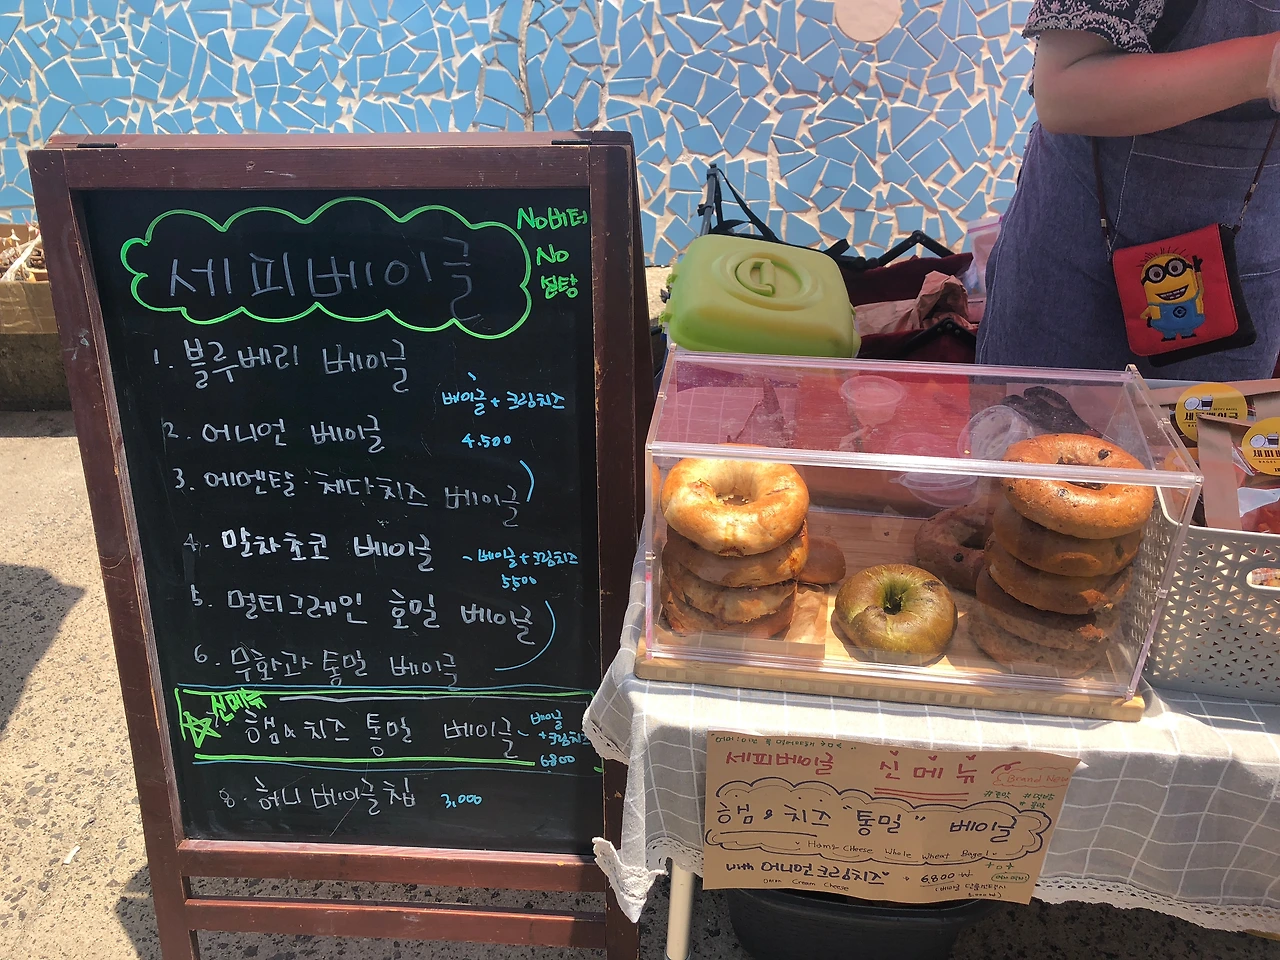 세피베이글
No버터
No
설탕
1. 블루베리 베이글
베이글 + 크림치즈
4.500
2. 어니언 베이글
3. 에멘탈·체다치즈 베이글
4. 말차초코 베이글
- 베이글 + 크림치즈
5.500
5. 멀티그레인 호밀 베이글
6. 무화과 통밀 베이글
신메뉴
햄&치즈 통밀 베이글 -
베이글
+크림치즈
6800
8. 허니 베이글칩 3,000
세피베이글 신메뉴
Brand New
햄&치즈 "통밀" 베이글
Ham & Cheese Whole Wheat Bagel
with 어니언크림치즈 6,800₩
Onion Cream Cheese
세피베이글